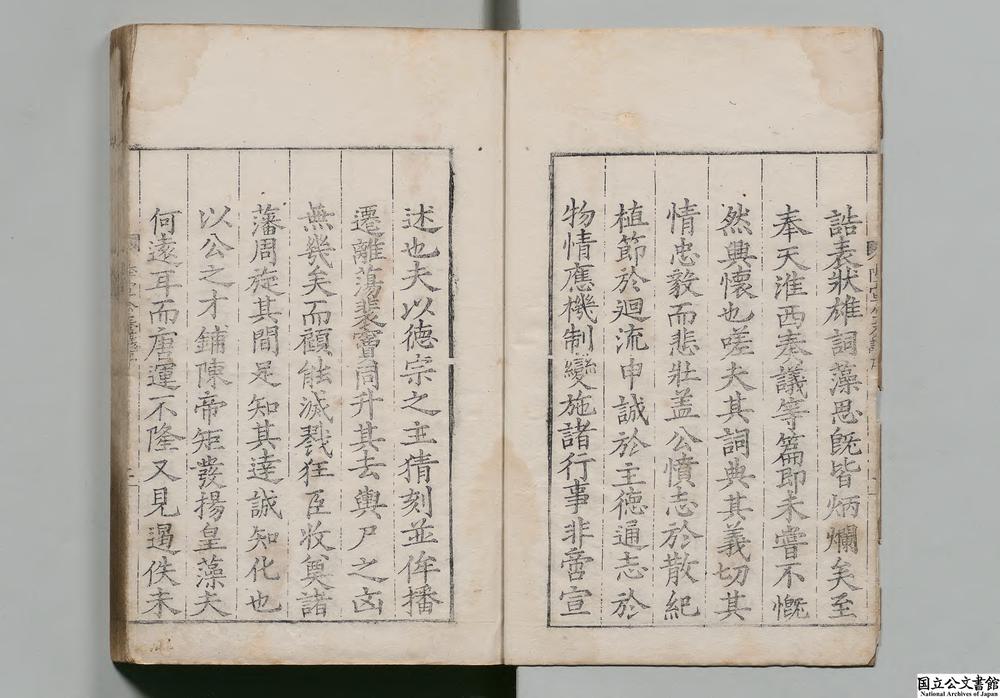 誥表狀雄詞藻思旣皆炳爛矣至
奉天淮西奏議等篇即未嘗不慨
然興懷也嗟夫其詞典其義切其
情忠毅而悲壯盖公憤志於散紀
植節於迴流申誠於主德通志於
物情應機制變施諸行事非啻宣
述也夫以德宗之主猜刻並侔播
遷離蕩裴竇同升其去輿尸之凶
無幾矣而顧能滅戮狂臣收奠諸
藩周旋其間足知其達誠知化也
以公之才鋪陳帝矩發揚皇藻夫
何遠耳而唐運不隆又見遏佚未
国立公文書館
National Archives of Japan